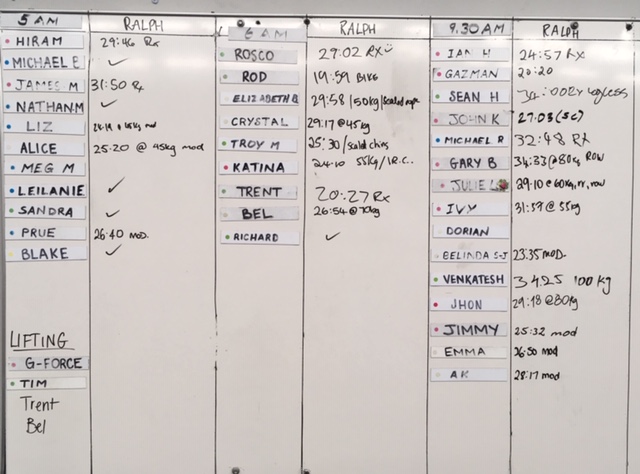 5 AM RALPH
HIRAM 29:46 Rx
MICHAEL B ✓
JAMES M 31:50 Rx
NATHAN M ✓
LIZ mod
ALICE 25:20 @ 45kg mod
MEG M
LEILANIE ✓
SANDRA ✓
PRUE 26:40 mod.
BLAKE ✓
LIFTING
G-FORCE
TIM
Trent
Bel
6 AM RALPH
ROSCO 29:02 Rx
ROD 19:59 BIKE
ELIZABETH B 29:58 /50kg/scaled
CRYSTAL 29:17 @ 45kg
TROY M 25:30 /scaled chins
KATINA 24:10 55kg/I.R.C.
TRENT 20:27 Rx
BEL 26:54 @ 70kg
RICHARD ✓
9.30AM RALPH
IAN H 24:57 Rx
GAZMAN 20:20
SEAN H 34:00 Rx legless
JOHN K 27:03 (SC)
MICHAEL R 32:48 RX
GARY B 34:33 @ 80kg ROW
JULIE L 29:10 @ 60kg, rr, row
IVY 31:59 @ 55kg
DORIAN
BELINDA S-J 23:35 mod.
VENKATESH 34.25 100 kg
JHON 29:18 @ 80kg
JIMMY 25:32 mod
EMMA 26:50 mod
AK 28:17 mod